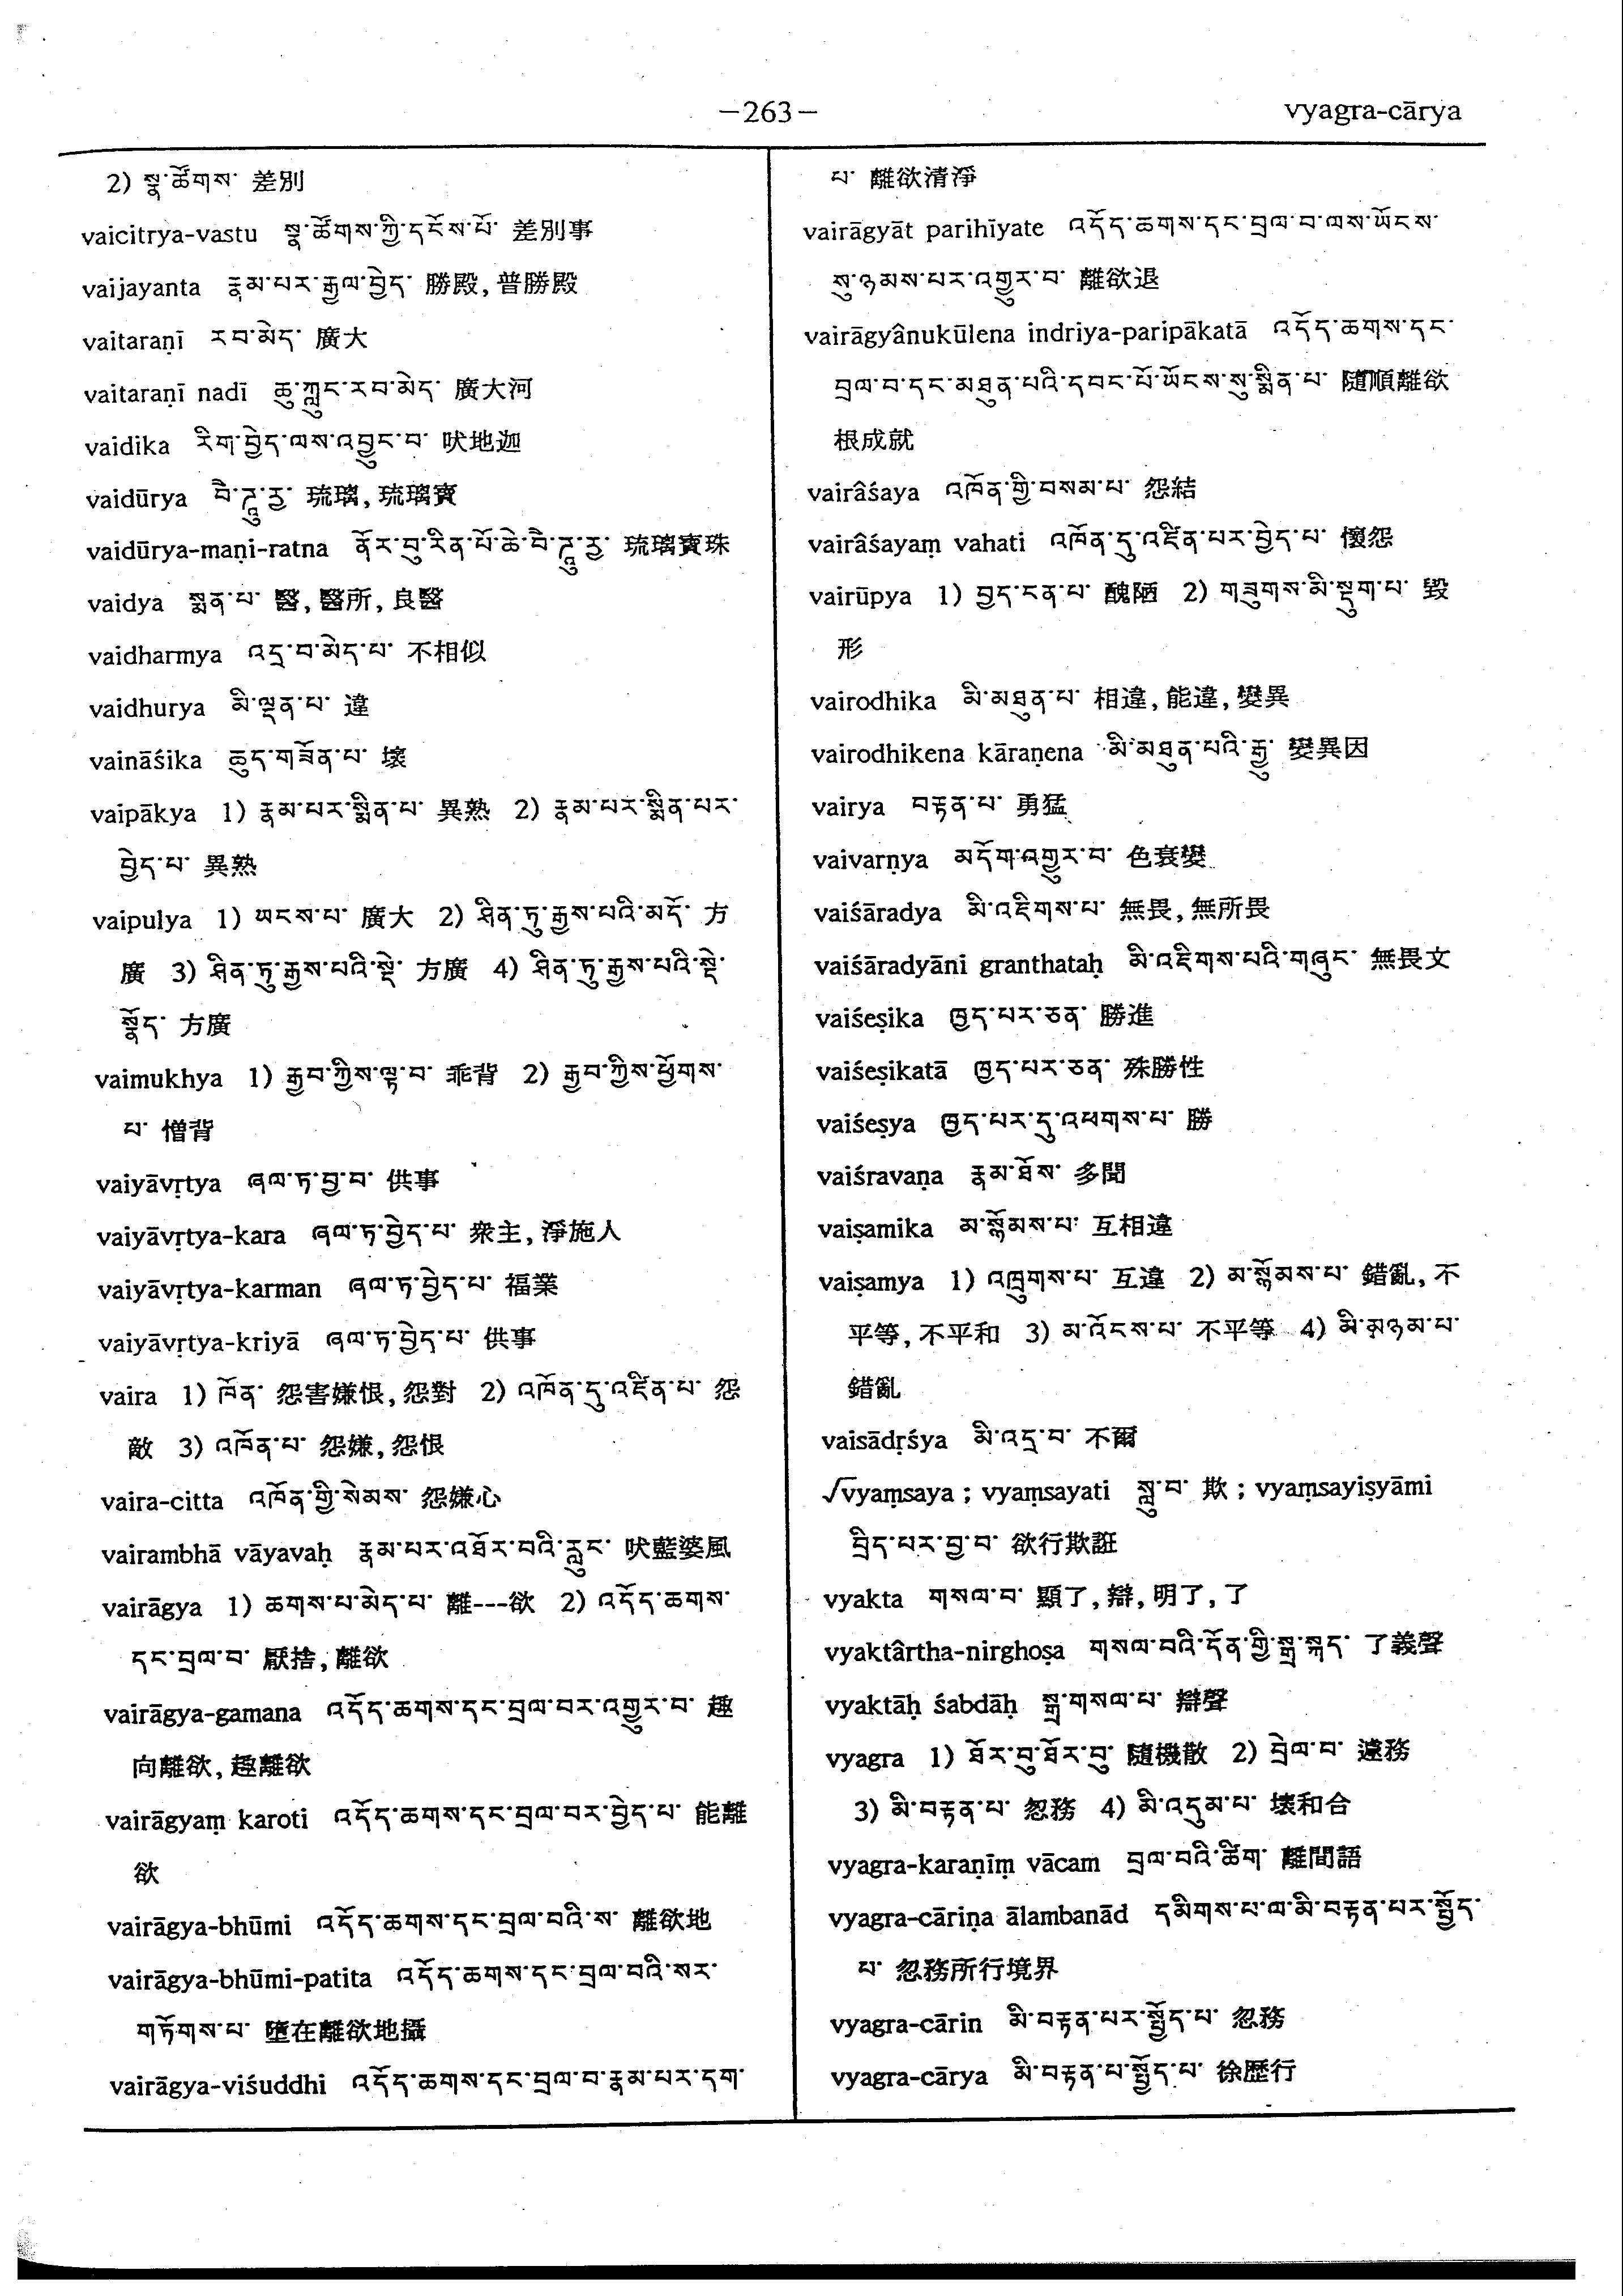 —263—
vyagra-cārya
2) སྣ་ཚོགས་ 差別
vaicitrya-vastu སྣ་ཚོགས་ཀྱི་དངོས་པོ་ 差別事
vaijayanta རྣམ་པར་རྒྱལ་བྱེད་ 勝殿, 普勝殿
vaitaraṇī རབ་མེད་ 廣大
vaitaraṇī nadī ཆུ་ཀླུང་རབ་མེད་ 廣大河
vaidika རིག་བྱེད་ལས་འབྱུང་བ་ 吠地迦
vaidūrya བཻ་ཌཱུ་རྱ་ 琉璃, 琉璃寶
vaidūrya-maṇi-ratna ནོར་བུ་རིན་པོ་ཆེ་བཻ་ཌཱུ་རྱ་ 琉璃寶珠
vaidya སྨན་པ་ 醫, 醫所, 良醫
vaidharmya འདྲ་བ་མེད་པ་ 不相似
vaidhurya མི་ལྡན་པ་ 違
vaināśika ཆུད་གཟོན་པ་ 壞
vaipākya 1) རྣམ་པར་སྨིན་པ་ 異熟 2) རྣམ་པར་སྨིན་པར་
བྱེད་པ་ 異熟
vaipulya 1) ཡངས་པ་ 廣大 2) ཤིན་ཏུ་རྒྱས་པའི་མདོ་ 方
廣 3) ཤིན་ཏུ་རྒྱས་པའི་སྡེ་ 方廣 4) ཤིན་ཏུ་རྒྱས་པའི་སྡེ་
སྣོད་ 方廣
vaimukhya 1) རྒྱབ་ཀྱིས་ལྟ་བ་ 乖背 2) རྒྱབ་ཀྱིས་ཕྱོགས་
པ་ 憎背
vaiyāvṛtya ཞལ་ཏ་བྱ་བ་ 供事
vaiyāvṛtya-kara ཞལ་ཏ་བྱེད་པ་ 衆主, 淨施人
vaiyāvṛtya-karman ཞལ་ཏ་བྱེད་པ་ 福業
vaiyāvṛtya-kriyā ཞལ་ཏ་བྱེད་པ་ 供事
vaira 1) ཁོན་ 怨害嫌恨, 怨對 2) འཁོན་དུ་འཛིན་པ་ 怨
敵 3) འཁོན་པ་ 怨嫌, 怨恨
vaira-citta འཁོན་གྱི་སེམས་ 怨嫌心
vairambhā vāyavaḥ རྣམ་པར་འཐོར་བའི་རླུང་ 吠藍婆風
vairāgya 1) ཆགས་པ་མེད་པ་ 離---欲 2) འདོད་ཆགས་
དང་བྲལ་བ་ 厭捨, 離欲
vairāgya-gamana འདོད་ཆགས་དང་བྲལ་བར་འགྱུར་བ་ 趣
向離欲, 趣離欲
vairāgyaṃ karoti འདོད་ཆགས་དང་བྲལ་བར་བྱེད་པ་ 能離
欲
vairāgya-bhūmi འདོད་ཆགས་དང་བྲལ་བའི་ས་ 離欲地
vairāgya-bhūmi-patita འདོད་ཆགས་དང་བྲལ་བའི་སར་
གཏོགས་པ་ 墮在離欲地攝
vairāgya-viśuddhi འདོད་ཆགས་དང་བྲལ་བ་རྣམ་པར་དག་
པ་ 離欲清淨
vairāgyāt parihīyate འདོད་ཆགས་དང་བྲལ་བ་ལས་ཡོངས་
སུ་ཉམས་པར་འགྱུར་བ་ 離欲退
vairāgyânukūlena indriya-paripākatā འདོད་ཆགས་དང་
བྲལ་བ་དང་མཐུན་པའི་དབང་པོ་ཡོངས་སུ་སྨིན་པ་ 隨順離欲
根成就
vairâśaya འཁོན་གྱི་བསམ་པ་ 怨結
vairâśayaṃ vahati འཁོན་དུ་འཛིན་པར་བྱེད་པ་ 懷怨
vairūpya 1) བྱད་ངན་པ་ 醜陋 2) གཟུགས་མི་སྡུག་པ་ 毀
形
vairodhika མི་མཐུན་པ་ 相違, 能違, 變異
vairodhikena kāraṇena མི་མཐུན་པའི་རྒྱུ་ 變異因
vairya བརྟན་པ་ 勇猛
vaivarṇya མདོག་འགྱུར་བ་ 色衰變
vaiśāradya མི་འཇིགས་པ་ 無畏, 無所畏
vaiśāradyāni granthataḥ མི་འཇིགས་པའི་གཞུང་ 無畏文
vaiśeṣika ཁྱད་པར་ཅན་ 勝進
vaiśeṣikatā ཁྱད་པར་ཅན་ 殊勝性
vaiśeṣya ཁྱད་པར་དུ་འཕགས་པ་ 勝
vaiśravaṇa རྣམ་ཐོས་ 多聞
vaiṣamika མ་སྙོམས་པ་ 互相違
vaiṣamya 1) འཁྲུགས་པ་ 互違 2) མ་སྙོམས་པ་ 錯亂, 不
平等, 不平和 3) མ་འོངས་པ་ 不平等 4) མི་མཉམ་པ་
錯亂
vaisādṛśya མི་འདྲ་བ་ 不爾
√vyaṃsaya ; vyaṃsayati སླུ་བ་ 欺 ; vyaṃsayiṣyāmi
བྲིད་པར་བྱ་བ་ 欲行欺誑
vyakta གསལ་བ་ 顯了, 辯, 明了, 了
vyaktârtha-nirghoṣa གསལ་བའི་དོན་གྱི་སྒྲ་སྐད་ 了義聲
vyaktāḥ śabdāḥ སྒྲ་གསལ་པ་ 辯聲
vyagra 1) ཐོར་བུ་ཐོར་བུ་ 隨機散 2) བྲེལ་བ་ 遽務
3) མི་བརྟན་པ་ 忽務 4) མི་འདུམ་པ་ 壞和合
vyagra-karaṇīṃ vācam བྲལ་བའི་ཚིག་ 離間語
vyagra-cāriṇa ālambanād དམིགས་པ་ལ་མི་བརྟན་པར་སྤྱོད་
པ་ 忽務所行境界
vyagra-cārin མི་བརྟན་པར་སྤྱོད་པ་ 忽務
vyagra-cārya མི་བརྟན་པ་སྤྱོད་པ་ 徐歷行